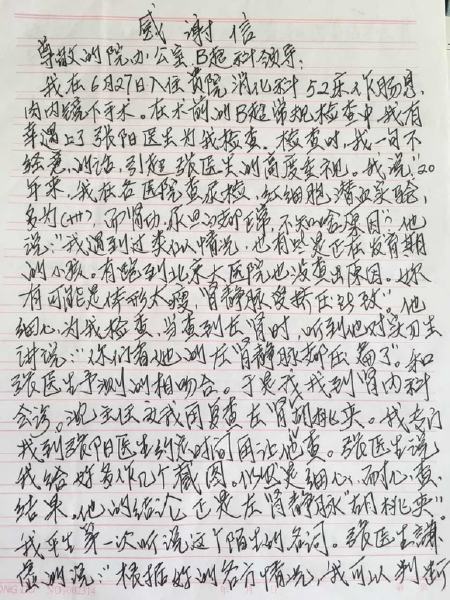 感谢信
尊敬的院办公室、B超科领导:
我在6月27日入住贵院消化科52床作肠息
肉内镜下手术。在术前的B超常规检查中,我有
幸遇上了张阳医生为我检查。检查时,我一句不
经意的话,引起张医生的高度重视。我说:"20
年来,我在各医院查尿检,红细胞潜血实验,
多为(+++),而肾功,尿蛋白都正常,不知啥原因?"他
说:"我遇到过类似情况,也有些是正在发育期
的小孩。有跑到北京大医院也没查出原因。你
有可能是体形太瘦,肾静脉受挤压致。"他
细心为我检查,当查到左肾时,听到他对实习生
讲说:"你们看他的左肾静脉挤压扁了。"和
张医生予测的相吻合。于是我找到肾内科
会诊。沈主任 我 复查左肾胡桃夹。我专门
找到张阳医生约定时间再让他查。张医生说
我给你多作几个截图。他还是细心,耐心查,
结果,他的结论还是左肾静脉"胡桃夹"。
我平生第一次听说这个陌生的名词。张医生谦
虚的说:"根据你的各方情况,我可以判断